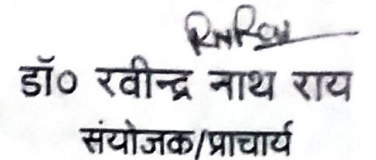 RNRai
डॉ० रवीन्द्र नाथ राय
संयोजक/प्राचार्य